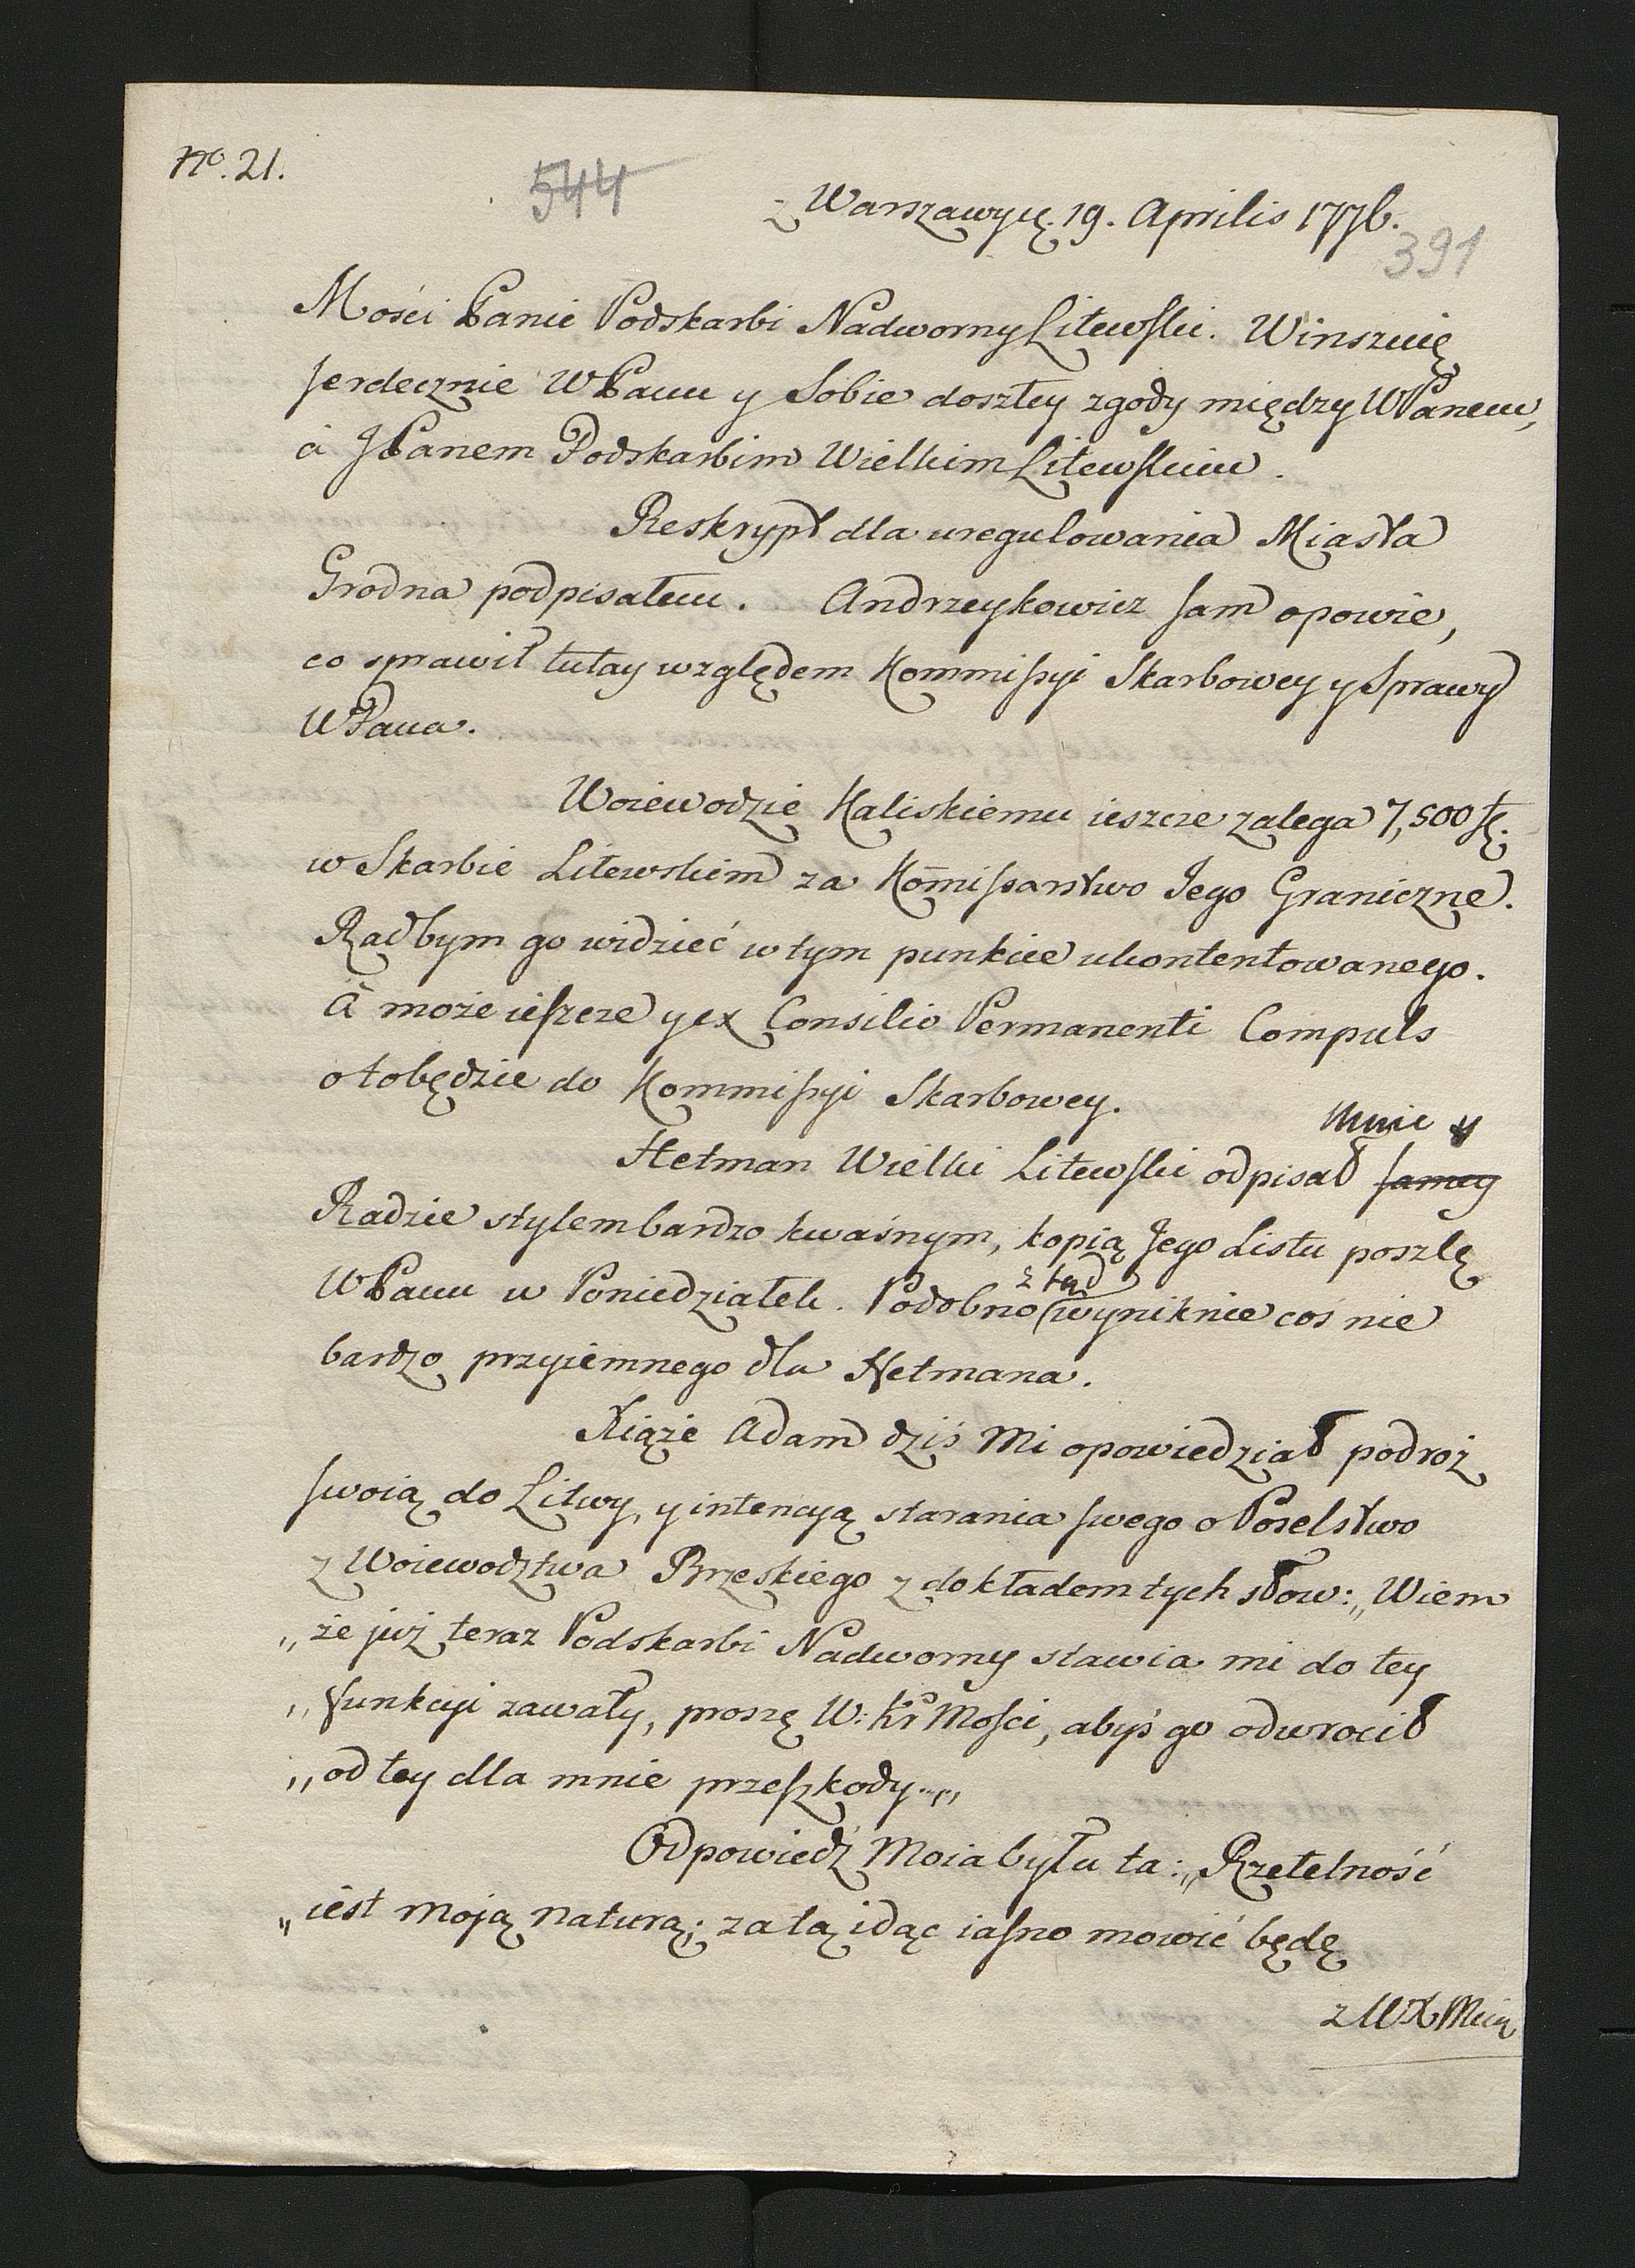 No. 21.
544
z Warszawy 19. Aprilis 1776.
391
Mości Panie Podskarbi Nadworny Litewski. Winszuię
serdecznie WPanu y Sobie doszłey zgody między WPanem,
à JPanem Podskarbim Wielkim Litewskim.
Reskrypt dla uregulowania Miasta
Grodna podpisałem. Andrzeykowicz sam opowie,
co sprawił tutay względem Kommissyi Skarbowey y Sprawy
WPana.
Woiewodzie Kaliskiemu ieszcze zalega 7,500 fł.
w Skarbie Litewskim za Kom̄issarstwo Jego Graniczne.
Radbym go widzieć w tym punkcie ukontentowanego.
à może ieszcze y ex Consilio Permanenti Compuls
o to będzie do Kommissyi Skarbowey.
Mnie y
Hetman Wielki Litewski odpisał samey
Radzie stylem bardzo kwaśnym, kopią Jego Listu poszlę
z tąd
WPanu w Poniedziałek. Podobno wyniknie coś nie
bardzo przyiemnego dla Hetmana.
Xiąże Adam dziś Mi opowiedział podroż
swoią do Litwy, y intencyą starania swego o Poselstwo
z Woiewodztwa Brzeskiego z dokładem tych słow: „Wiem
„że już teraz Podskarbi Nadworny stawia mi do tey
„funkcyi zawały, proszę W: Kr Mości, abyś go odwrocił
„od tey dla mnie przeszkody.„
Odpowiedź Moia była ta: „Rzetelność
„iest moją naturą; za tą idąc iasno mowić będę
z WX Mcią